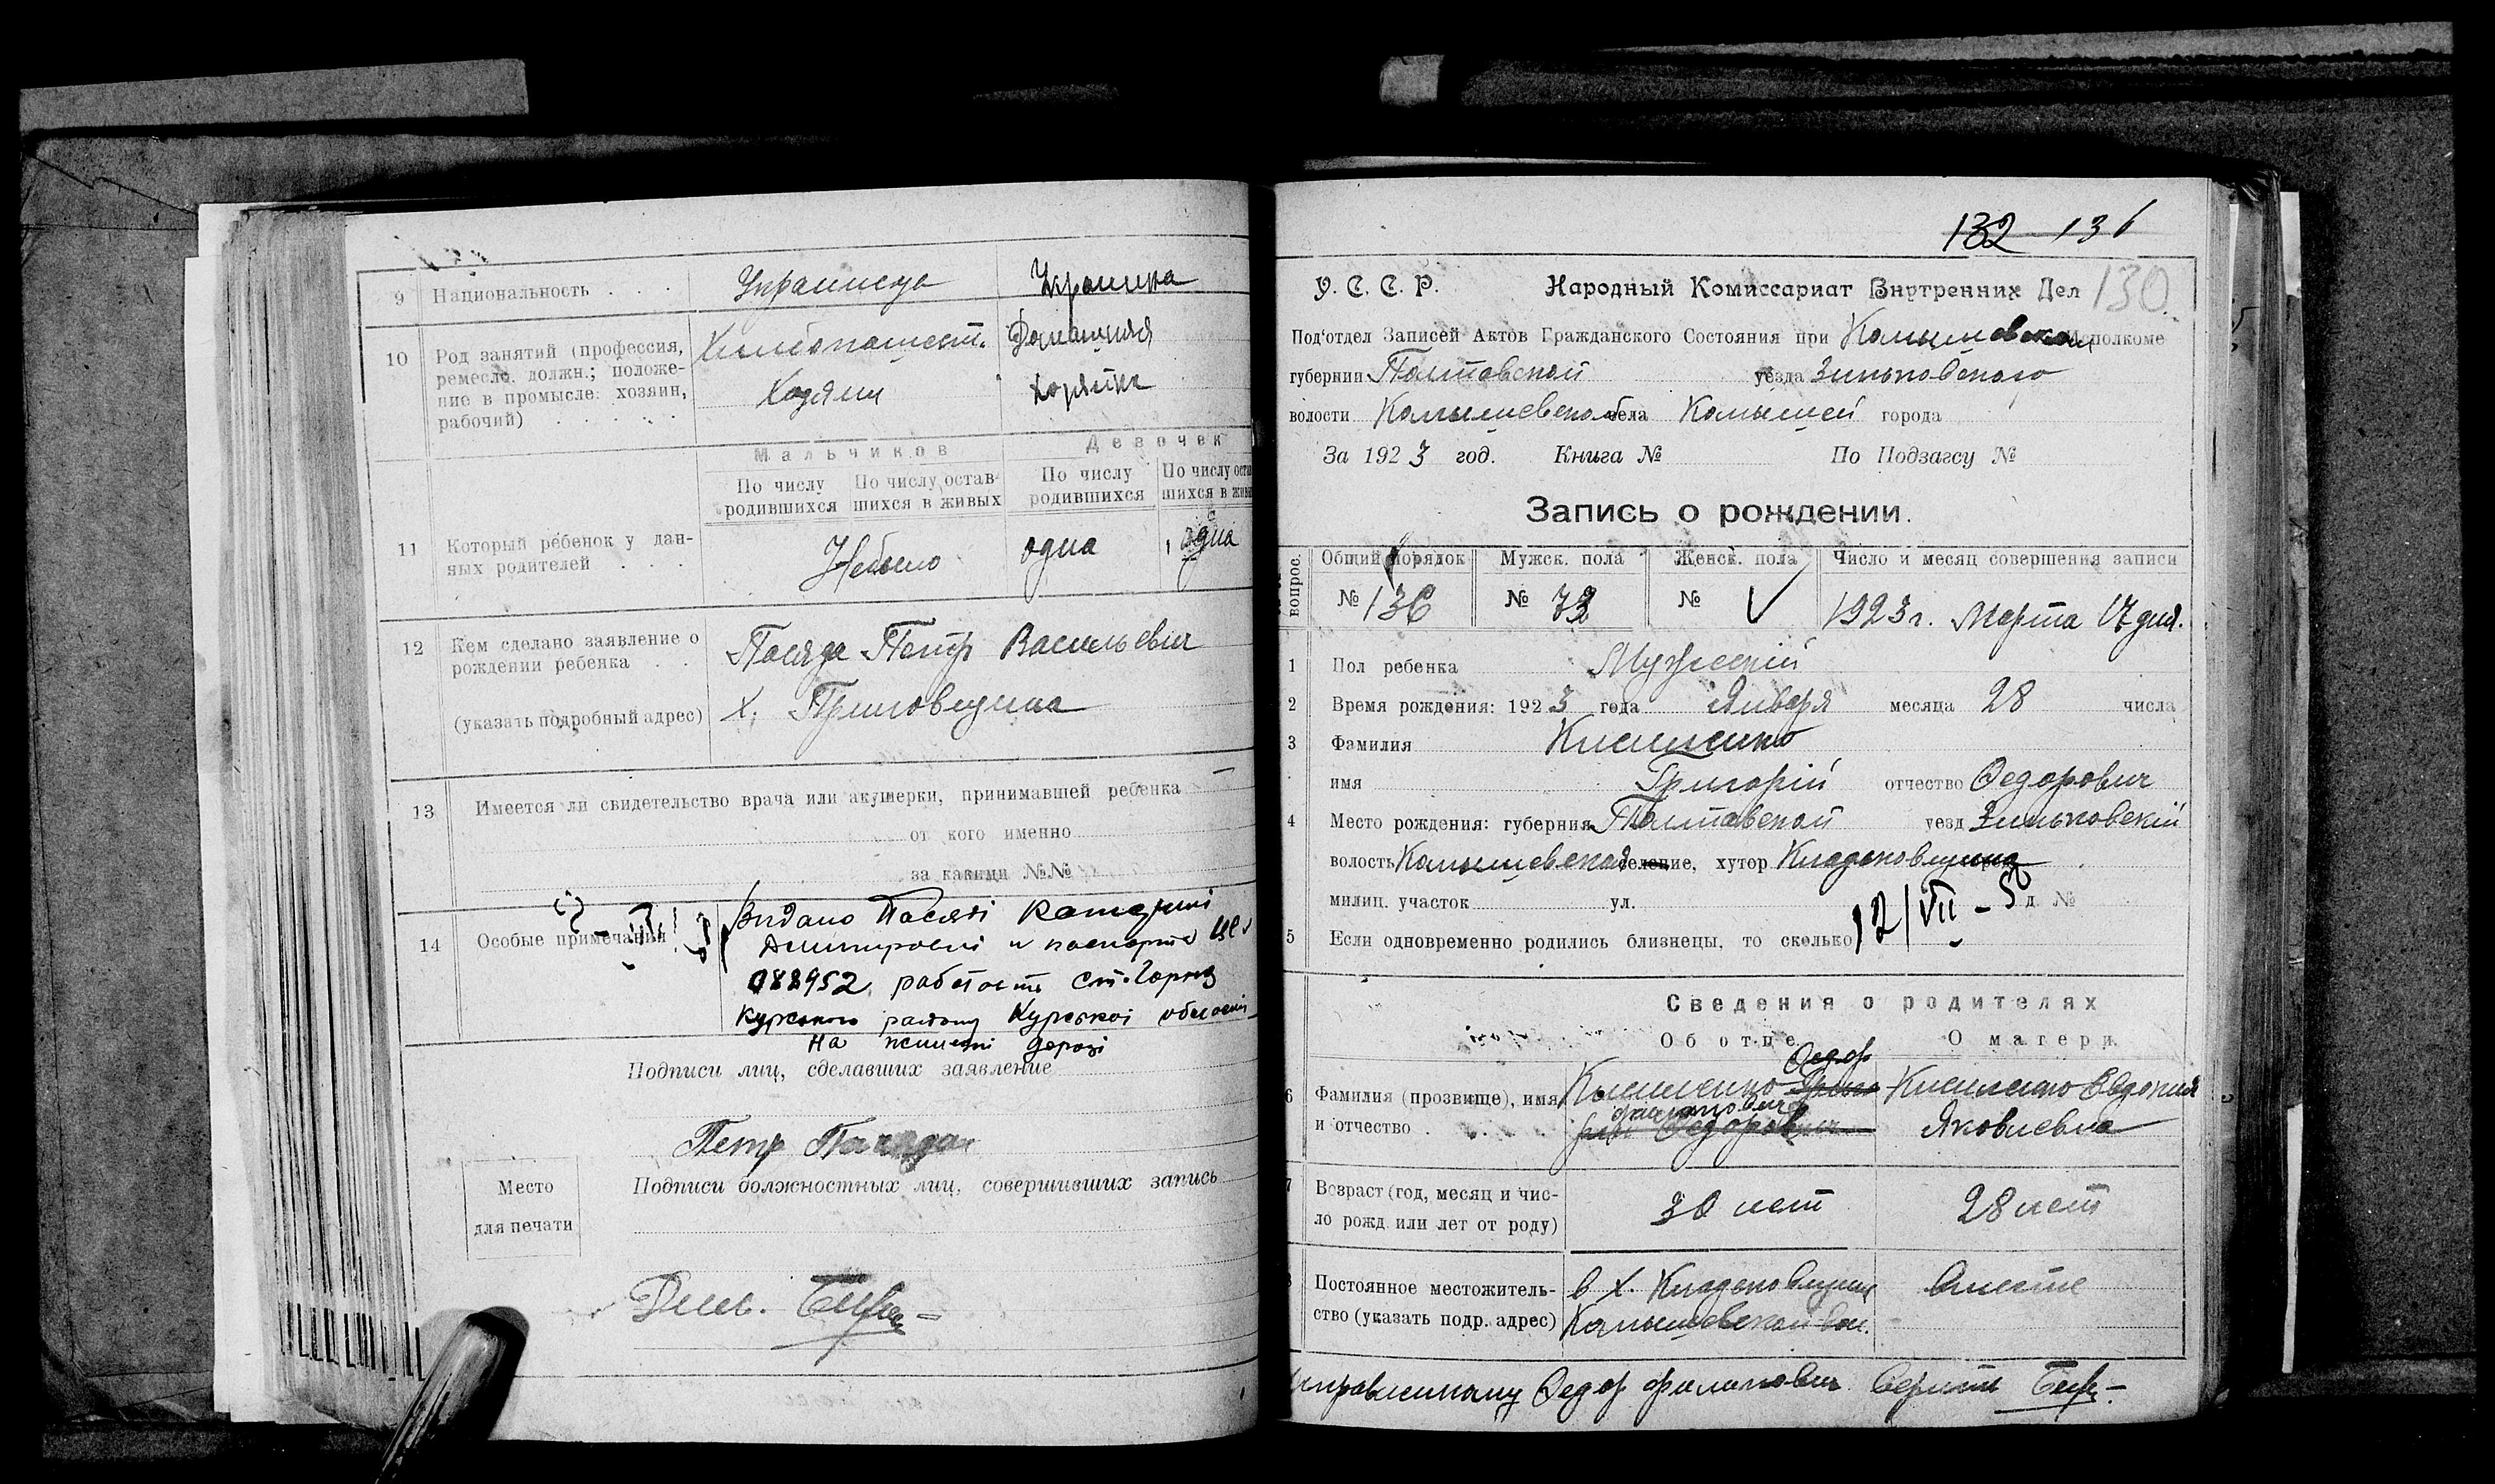 9 Национальность . . . Украинец Украинка
10 Род занятий (профессия, Хлебопашест. Домашняя
ремесло, должн.; положе-
ние в промысле: хозяин, Хозяин Хозяйка
рабочий) . . . . .
Мальчиков Девочек
По числу По числу остав- По числу По числу оста
родившихся шихся в живых родившихся шихся в жив
11 Который ребенок у дан- Небыло одна одна
ных родителей . . .
12 Кем сделано заявление о Посяда Петр Васильевич
рождении ребенка . .
(указать подробный адрес) х.
13 Имеется ли свидетельство врача или акушерки, принимавшей ребенка —
от кого именно
за какими №№
14 Особые примечания Видано Посяді Катерині
Дмитровні паспорта
088952 работает ст.
Курського району Курської області
На дорозі
Подписи лиц, сделавших заявление
Петр Посяда
Место Подписи должностных лиц, совершивших запись
для печати
132 136
У. С. С. Р. Народный Комиссариат Внутренних Дел 130
Под'отдел Записей Актов Гражданского Состояния при Камышевском Исполкоме
губернии Полтавской уезда Зиньковского
волости Камышевской села Камышей города
За 1923 год. Книга № По Подзагсу №
Запись о рождении.
вопрос. Общий порядок Мужск. пола Женск. пола Число и месяц совершения записи
№ 136 № 73 № V 1923 г. Марта 17 дня.
1 Пол ребенка Мужеский
2 Время рождения: 1923 года Января месяца 28 числа
3 Фамилия Кисиленко
имя Григорій отчество Федорович
4 Место рождения: губерния Полтавской уезд Зиньковскій
волость Камышевская селение, хутор Кладьковщина
милиц. участок ул. д. №
12/VII – 50
5 Если одновременно родились близнецы, то сколько
Сведения о родителях
Об отце О матери
Федор
6 Фамилия (прозвище), имя Кисиленко Кисиленко Евдокия
Филипович
и отчество . . . . . Федорович Яковлевна
7 Возраст (год, месяц и чис- 30 лет 28 лет
ло рожд. или лет от роду)
8 Постоянное местожитель- в х. Кладьковщине вместе
ство (указать подр. адрес) Камышевской вол.
исправленному Федор Филипович верить